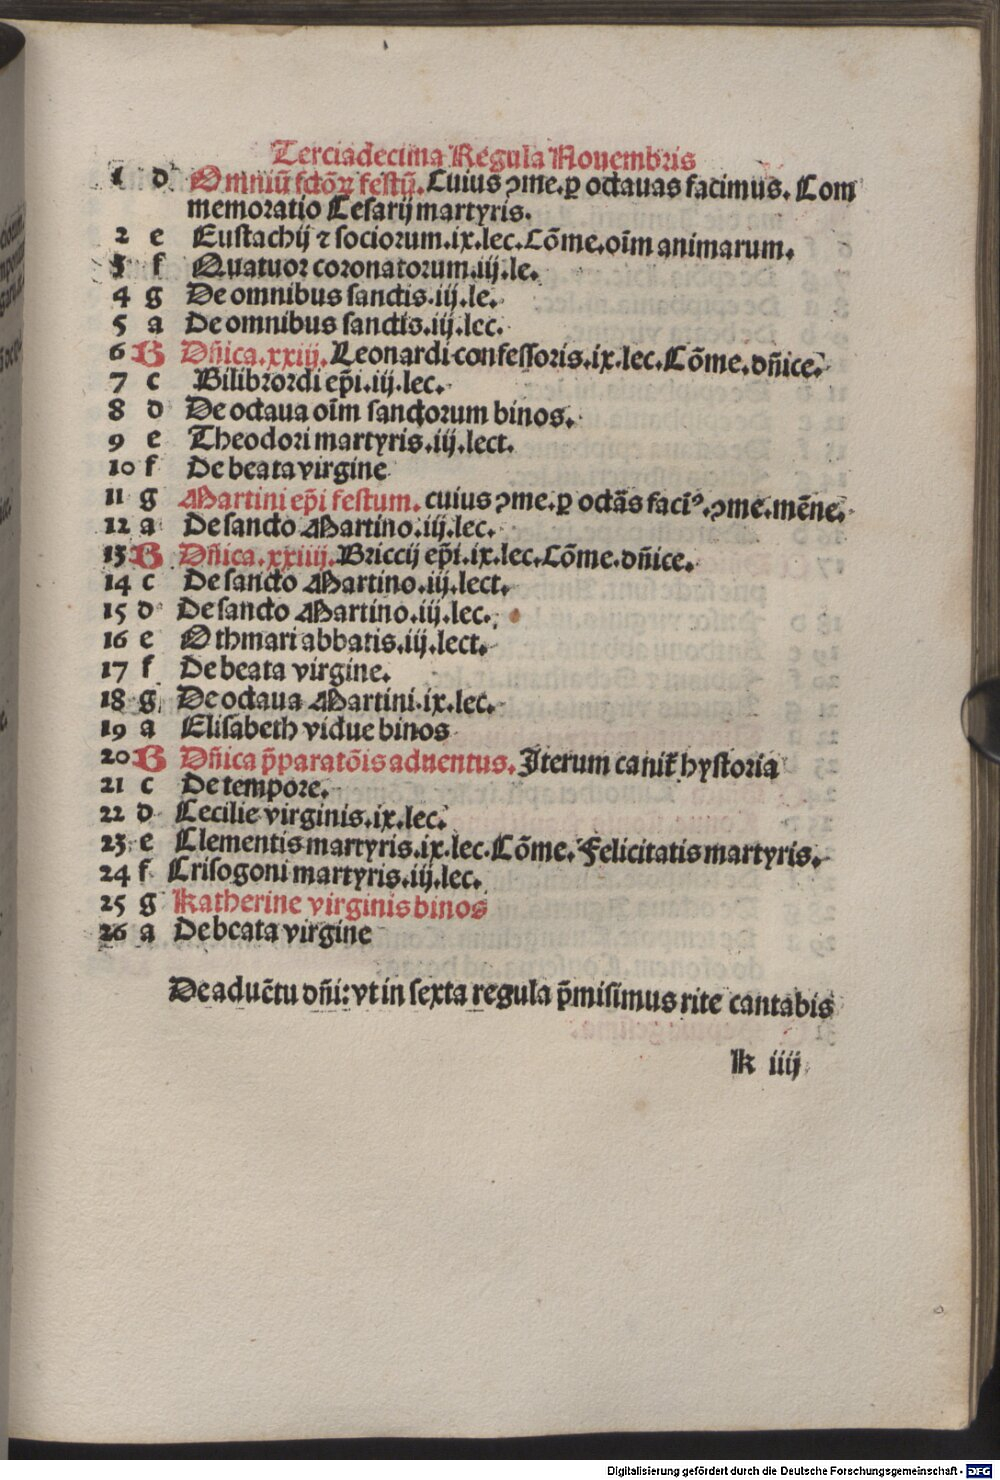 Terciadecima Regula Nouembris
1 d Omniū sctōꝝ festū. Cuius ꝯme. ꝑ octauas facimus. Com
memoratio Cesarij martyris.
2 e Eustachij ⁊ sociorum. ix. lec. Cōme. oīm animarum.
3 f Quatuor coronatorum. iij. le.
4 g De omnibus sanctis. iij. le.
5 a De omnibus sanctis. iij. lec.
6 B Dn̄ica. xxiij. Leonardi confessoris. ix. lec. Cōme. dn̄ice.
7 c Bilibrordi ep̄i. iij. lec.
8 d De octaua oīm sanctorum binos.
9 e Theodori martyris. iij. lect.
10 f De beata virgine
11 g Martini ep̄i festum. cuius ꝯme. ꝑ octās faciꝰ. ꝯme. mēne.
12 a De sancto Martino. iij. lec.
13 B Dn̄ica. xxiiij. Briccij ep̄i. ix. lec. Cōme. dn̄ice.
14 c De sancto Martino. iij. lect.
15 d De sancto Martino. iij. lec.
16 e Othmari abbatis. iij. lect.
17 f De beata virgine.
18 g De octaua Martini. ix. lec.
19 a Elisabeth vidue binos
20 B Dn̄ica p̄paratōis aduentus. Iterum canit᷑ hystoria
21 c De tempore.
22 d Cecilie virginis. ix. lec.
23 e Clementis martyris. ix. lec. Cōme. Felicitatis martyris.
24 f Crisogoni martyris. iij. lec.
25 g Katherine virginis binos
26 a De beata virgine
De aduētu dn̄i: vt in sexta regula p̄misimus rite cantabis
k iiij
Digitalisierung gefördert durch die Deutsche Forschungsgemeinschaft - DFG